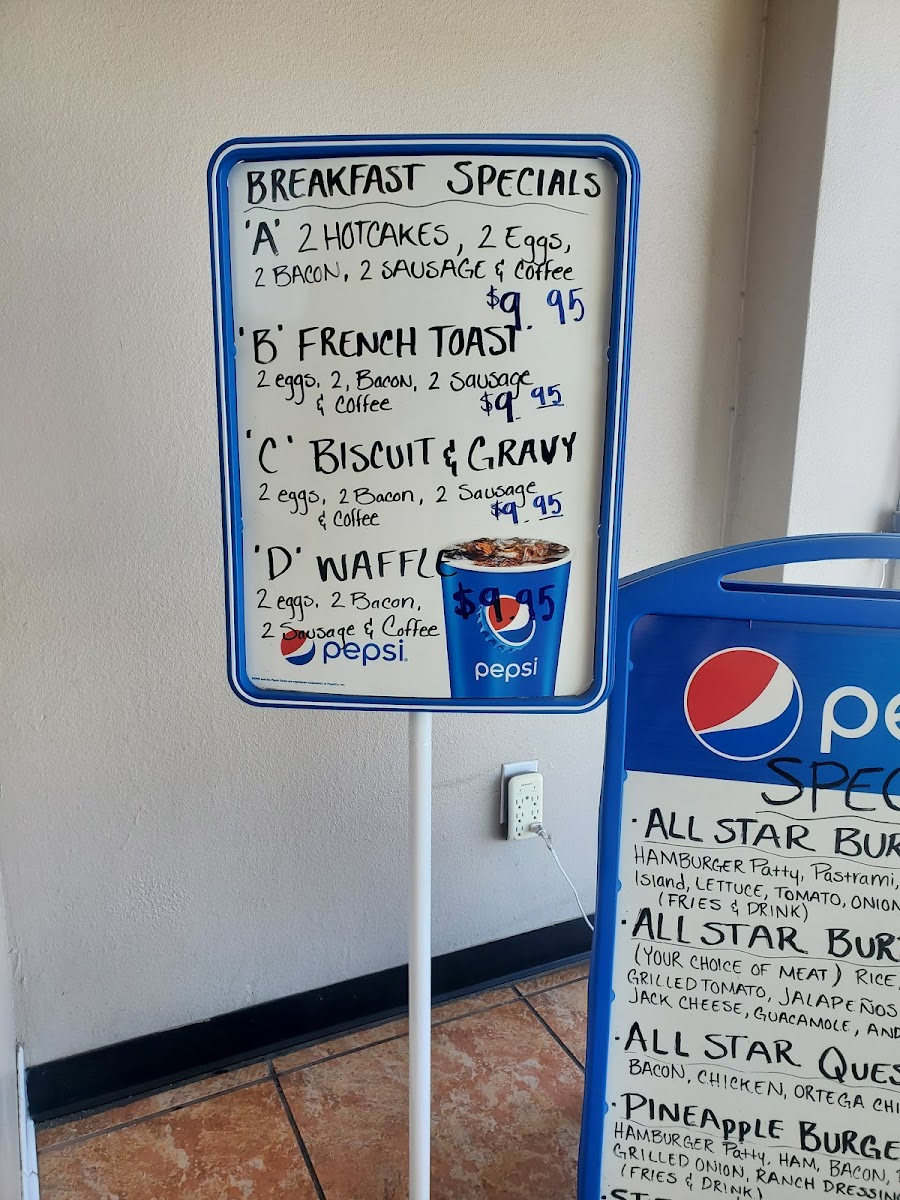 BREAKFAST SPECIALS
'A' 2 HOTCAKES, 2 Eggs,
2 BACON, 2 SAUSAGE & Coffee
$9.95
'B' FRENCH TOAST
2 eggs. 2, Bacon, 2 Sausage
& Coffee $9.95
'C' BISCUIT & GRAVY
2 eggs, 2 Bacon, 2 Sausage
& Coffee $9.95
'D' WAFFLE
2 eggs. 2 Bacon, $9.95
2 Sausage & Coffee
pepsi
pepsi
pe
SPEC
· ALL STAR BUR
HAMBURGER Patty, Pastrami,
Island, LETTUCE, TOMATO, ONION
(FRIES & DRINK)
· ALL STAR BUR
(YOUR CHOICE OF MEAT) RICE,
GRILLED TOMATO, JALAPEÑOS
JACK CHEESE, GUACAMOLE, AND
· ALL STAR QUES
BACON, CHICKEN, ORTEGA CHI
· PINEApple BURGE
HAMBURGER Patty, HAM, BACON,
GRILLED ONION, RANCH DRESSIN
(FRIES & DRINK)